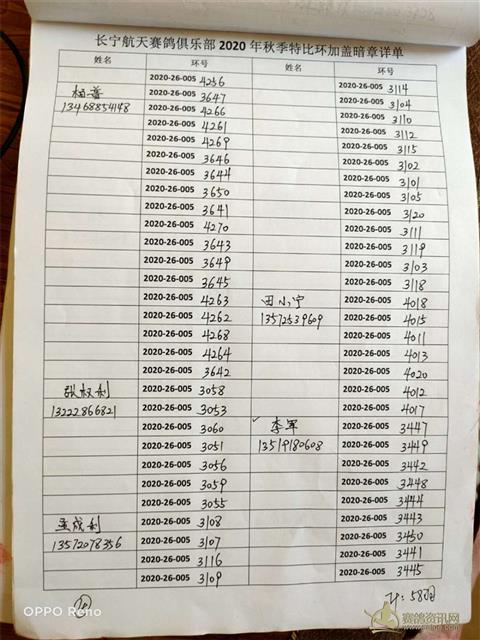 长宁航天赛鸽俱乐部 2020 年秋季特比环加盖暗章详单
姓名 环号 姓名 环号
2020-26-005 4256 2020-26-005 3114
2020-26-005 3647 2020-26-005 3104
13468854148 2020-26-005 4266 2020-26-005 3110
2020-26-005 4261 2020-26-005 3112
2020-26-005 4269 2020-26-005 3115
2020-26-005 3646 2020-26-005 3102
2020-26-005 3644 2020-26-005 3101
2020-26-005 3650 2020-26-005 3105
2020-26-005 3641 2020-26-005 3120
2020-26-005 4270 2020-26-005 3111
2020-26-005 3643 2020-26-005 3119
2020-26-005 3649 2020-26-005 3103
2020-26-005 3645 2020-26-005 3118
2020-26-005 4263 田小宁 2020-26-005 4018
2020-26-005 4262 13572539609 2020-26-005 4015
2020-26-005 4268 2020-26-005 4011
2020-26-005 4264 2020-26-005 4013
2020-26-005 3642 2020-26-005 4020
张权利 2020-26-005 3058 2020-26-005 4012
13222866821 2020-26-005 3053 2020-26-005 4017
2020-26-005 3060 李军 2020-26-005 3447
2020-26-005 3051 13519180608 2020-26-005 3449
2020-26-005 3056 2020-26-005 3442
2020-26-005 3059 2020-26-005 3448
2020-26-005 3055 2020-26-005 3444
孟成利 2020-26-005 3108 2020-26-005 3443
13572078356 2020-26-005 3107 2020-26-005 3450
2020-26-005 3116 2020-26-005 3441
2020-26-005 3109 2020-26-005 3445
58羽
OPPO Reno
赛鸽资讯网